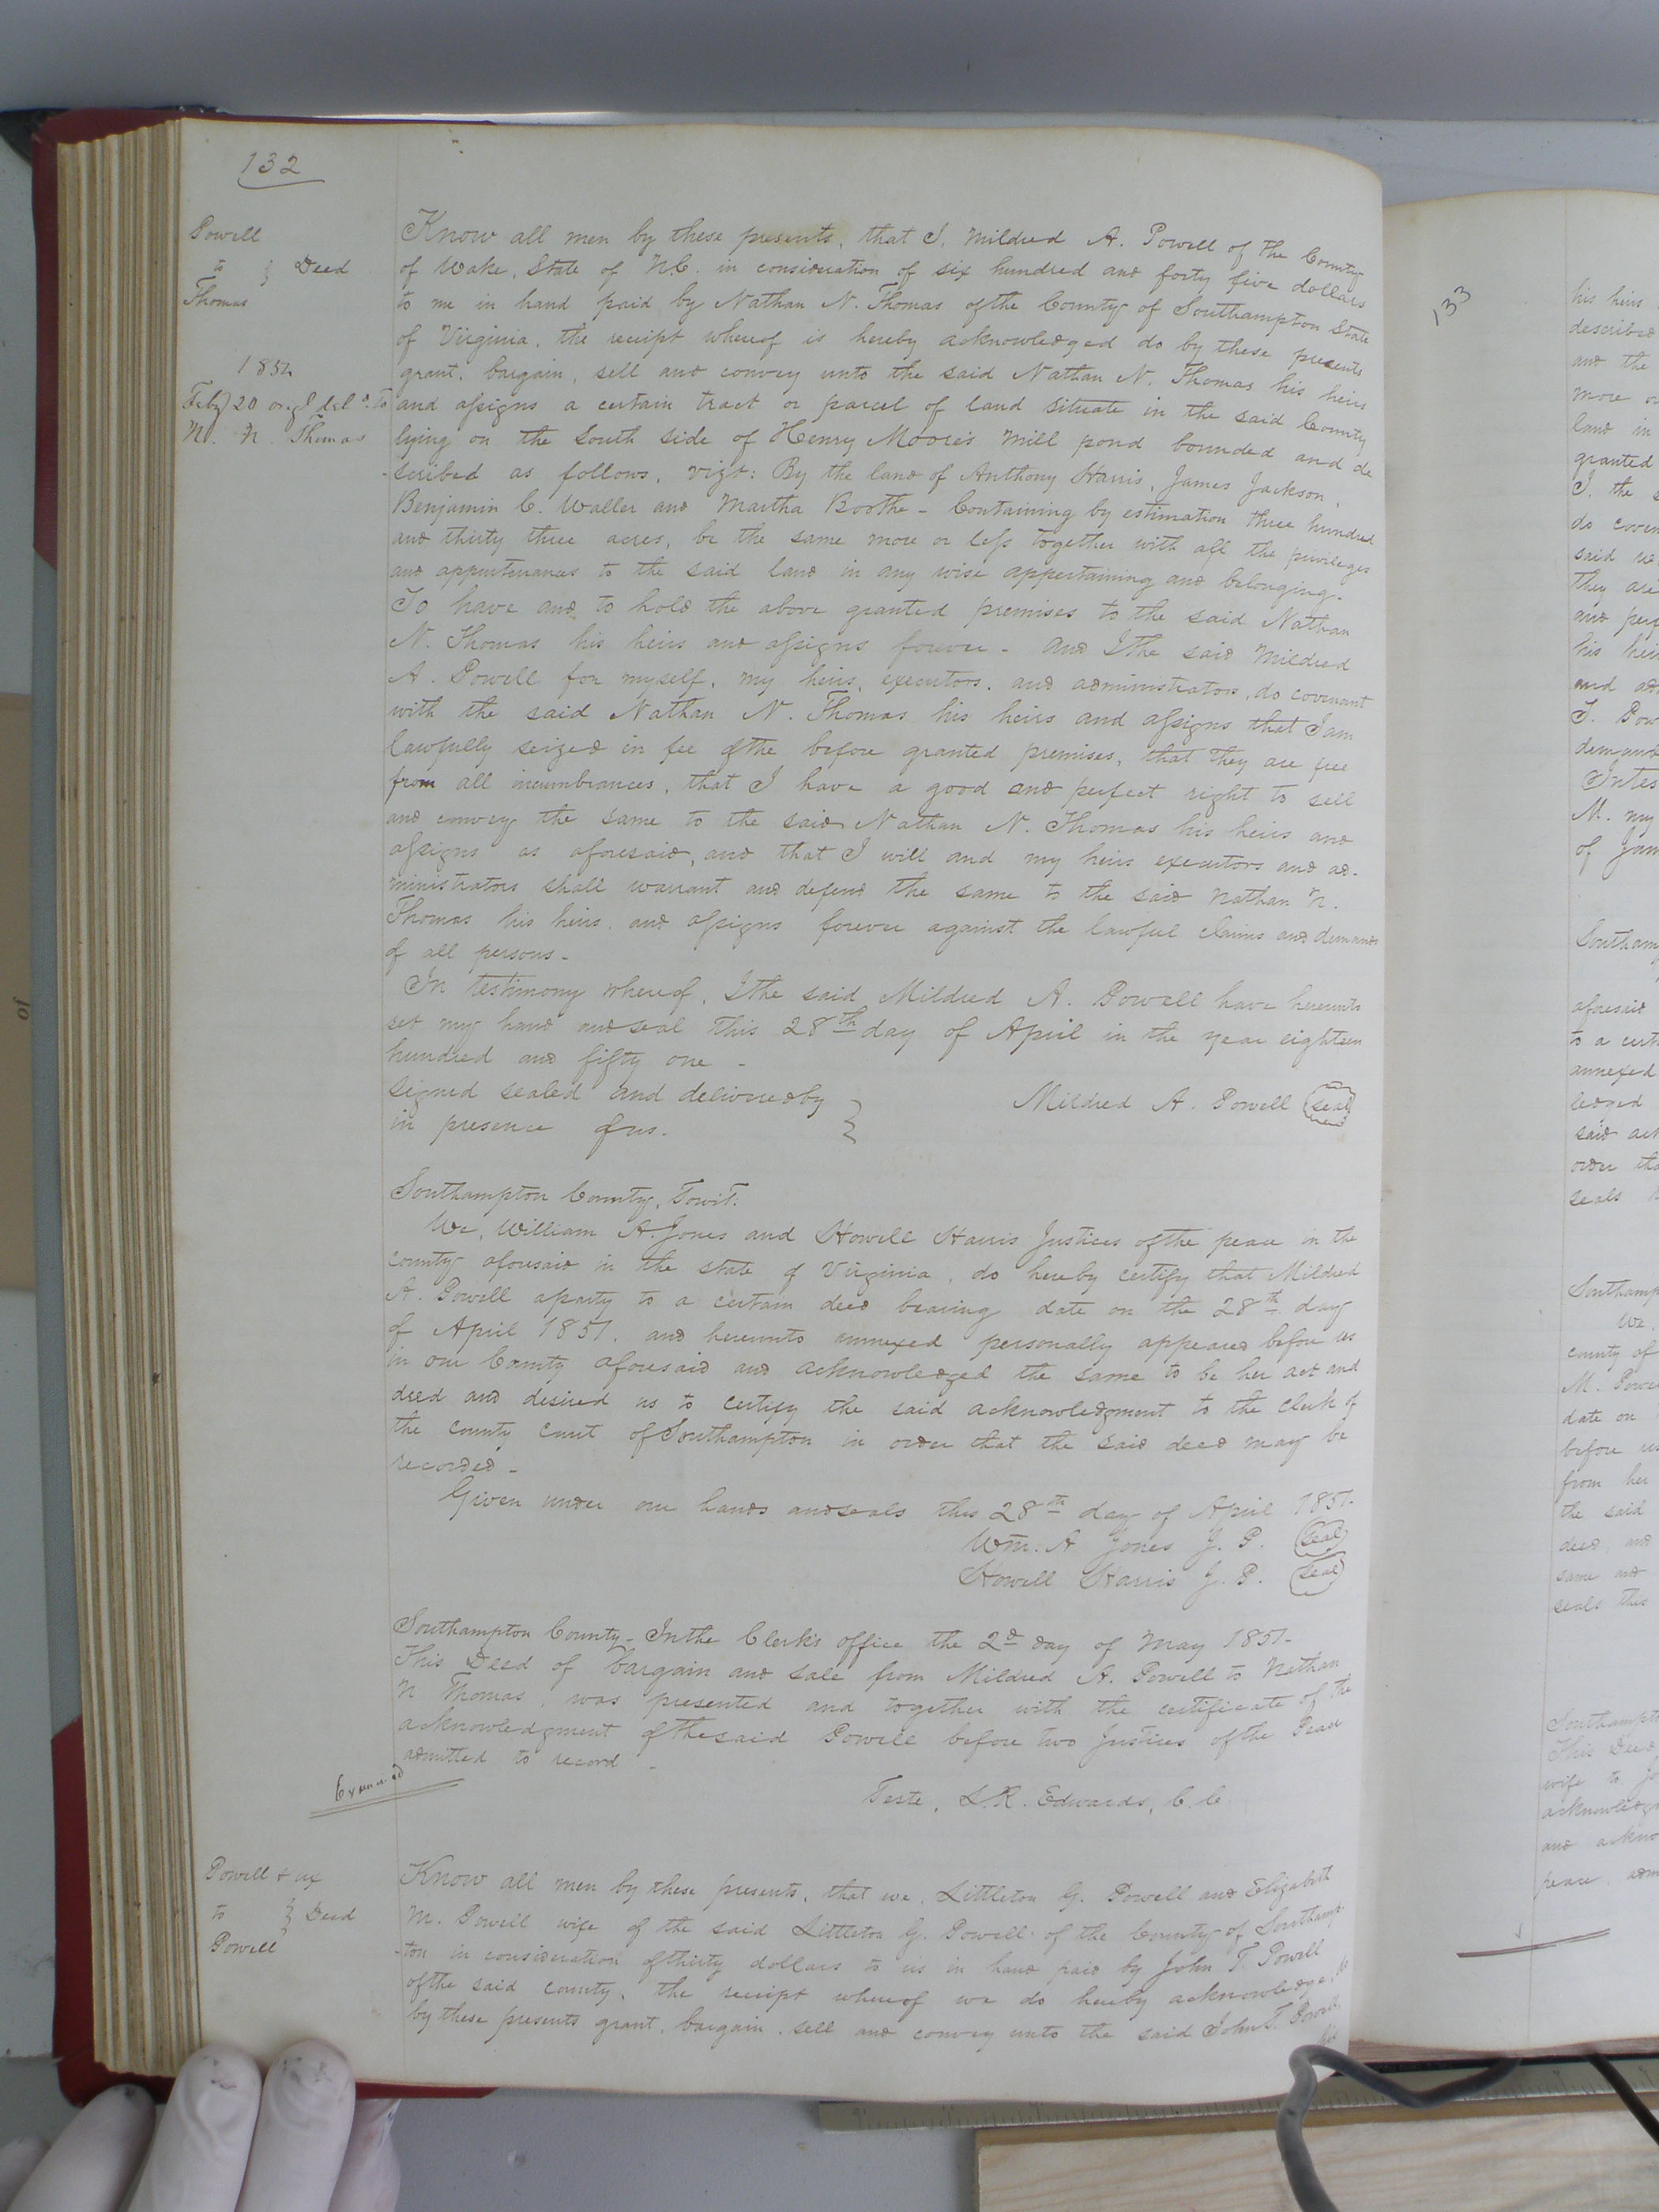 132
Powell
to } Deed
Thomas
1852
Feby 20 origl deld. to
N. N. Thomas
Know all men by these presents, that I, Mildred A. Powell of the County
of Wake, State of N.C. in consideration of six hundred and forty five dollars
to me in hand paid by Nathan N. Thomas of the County of Southampton State
of Virginia, the receipt whereof is hereby acknowledged do by these presents
grant, bargain, sell and convey unto the said Nathan N. Thomas his heirs
and assigns a certain tract or parcel of land situate in the said County
lying on the South side of Henry Moore's mill pond bounded and de
-scribed as follows, vizt: By the land of Anthony Harris, James Jackson,
Benjamin C. Waller and Martha Boothe - Containing by estimation three hundred
and thirty three acres, be the same more or less together with all the privileges
and appurtenances to the said land in any wise appertaining and belonging.
To have and to hold the above granted premises to the said Nathan
N. Thomas his heirs and assigns forever - And I the said Mildred
A. Powell for myself, my heirs, executors, and administrators, do covenant
with the said Nathan N. Thomas his heirs and assigns that I am
lawfully seized in fee of the before granted premises, that they are free
from all incumbrances, that I have a good and perfect right to sell
and convey the same to the said Nathan N. Thomas his heirs and
assigns as aforesaid, and that I will and my heirs executors and ad-
ministrators shall warrant and defend the same to the said Nathan N.
Thomas his heirs and assigns forever against the lawful claims and demands
of all persons -
In testimony whereof, I the said Mildred A. Powell have hereunto
set my hand and seal this 28th day of April in the year eighteen
hundred and fifty one -
signed sealed and delivered by }
in presence of us.
Mildred A. Powell (seal)
Southampton County, Towit:
We, William A. Jones and Howell Harris Justices of the peace in the
county aforesaid in the state of Virginia, do hereby certify that Mildred
A. Powell a party to a certain deed bearing date on the 28th day
of April 1851. and hereunto annexed personally appeared before us
in our County aforesaid and acknowledged the same to be her act and
deed and desired us to certify the said acknowledgment to the clerk of
the county court of Southampton in order that the said deed may be
recorded -
Given under our hands and seals this 28th day of April 1851-
Wm. A Jones J. P. (seal)
Howell Harris J. P. (seal)
Southampton County - In the Clerk's office the 2d day of May 1851-
This Deed of bargain and sale from Mildred A. Powell to Nathan
N Thomas, was presented and together with the certificate of the
acknowledgment of the said Powell before two Justices of the Peace
admitted to record -
Examined
Teste, L.R. Edwards, C. C
Powell & ux
to } Deed
Powell
Know all men by these presents, that we, Littleton G. Powell and Elizabeth
M. Powell wife of the said Littleton G. Powell of the County of Southamp
-ton in consideration of thirty dollars to us in hand paid by John T. Powell
of the said county, the receipt whereof we do hereby acknowledge, do
by these presents grant, bargain, sell and convey unto the said John T. Powell
his
133
his heirs
described
and the
more o
land in
granted
I, the
do coven
said we
they are
and perf
his heir
and ad
T. Pow
demand
M. my
of Jan
Southam
aforesaid
to a cert
annexed
ledged
said act
order tha
seals
Southamp
We,
county of
M. Powe
date on
before us
from her
the said
deed, and
same and
seals this
Southampto
This Deed
wife to Jo
acknowledg
and ackno
peace, adm